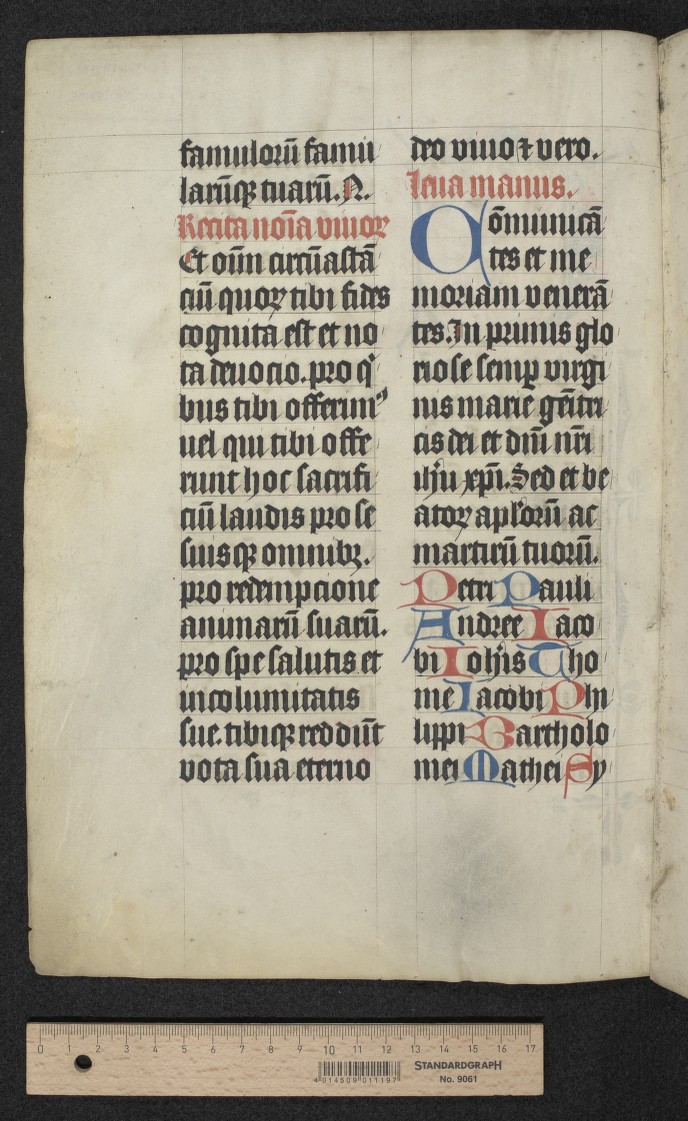 famulorū famu
larūqꝫ tuarū. N.
Recita noīa viuoꝝ
Et oīm circūastā
ciū quoꝝ tibi fides
cognita est et no
ta deuocio. pro qͥ
bus tibi offerimꝰ
uel qui tibi offe
runt hoc sacrifi
ciū laudis pro se
suisqꝫ omnibꝫ.
pro redempcione
animarū suarū.
pro spe salutis et
incolumitatis
sue. tibiqꝫ reddūt
vota sua eterno
deo viuo ⁊ vero.
leua manus.
Cōmunicā
tes et me
moriam venerā
tes. In primis glo
riose semꝑ virgi
nis marie geīitri
cis dei et dn̄i nr̄i
ihū xp̄i. Sed et be
atoꝝ apl'orū ac
martirū tuorū.
Petri Pauli
Andree Iaco
bi Ioh̄is Tho
me Iacobi Phi
lippi Bartholo
mei Mathei Sy
0 1 2 3 4 5 6 7 8 9 10 11 12 13 14 15 16 17
4 014509 011197
STANDARDGRAPH
No. 9061